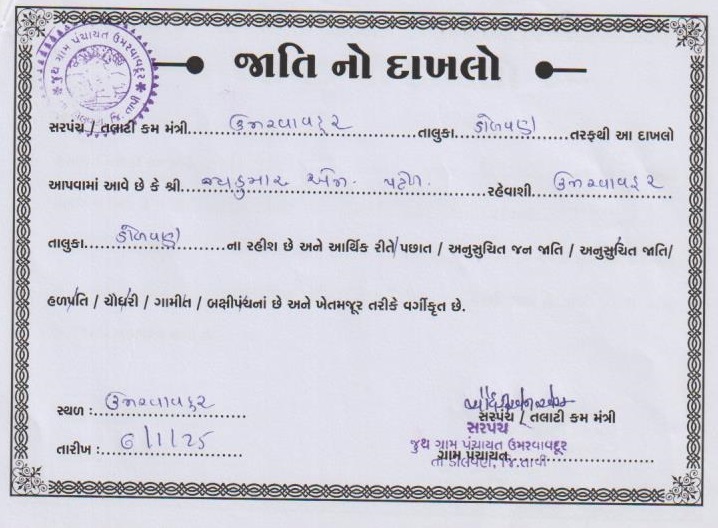 જુથ ગ્રામ પંચાયત ઉમરવાવદૂર
જિ. તાપી
જાતિ નો દાખલો
સરપંચ / તલાટી કમ મંત્રી ઉમરવાવદુર તાલુકા ડોલવણ તરફથી આ દાખલો
આપવામાં આવે છે કે શ્રી એન. રહેવાશી ઉમરવાવદુર
તાલુકા ડોલવણ ના રહીશ છે અને આર્થિક રીતે પછાત / અનુસુચિત જન જાતિ / અનુસુચિત જાતિ/
હળપતિ / ચૌધરી / ગામીત / બક્ષીપંચનાં છે અને ખેતમજૂર તરીકે વર્ગીકૃત છે.
સ્થળ : ઉમરવાવદુર
સરપંચ / તલાટી કમ મંત્રી
સરપંચ
જુથ ગ્રામ પંચાયત ઉમરવાવદૂર
તારીખ : 6/1/25
ગ્રામ પંચાયત
તા ડોલવણ, જિ.તાપી